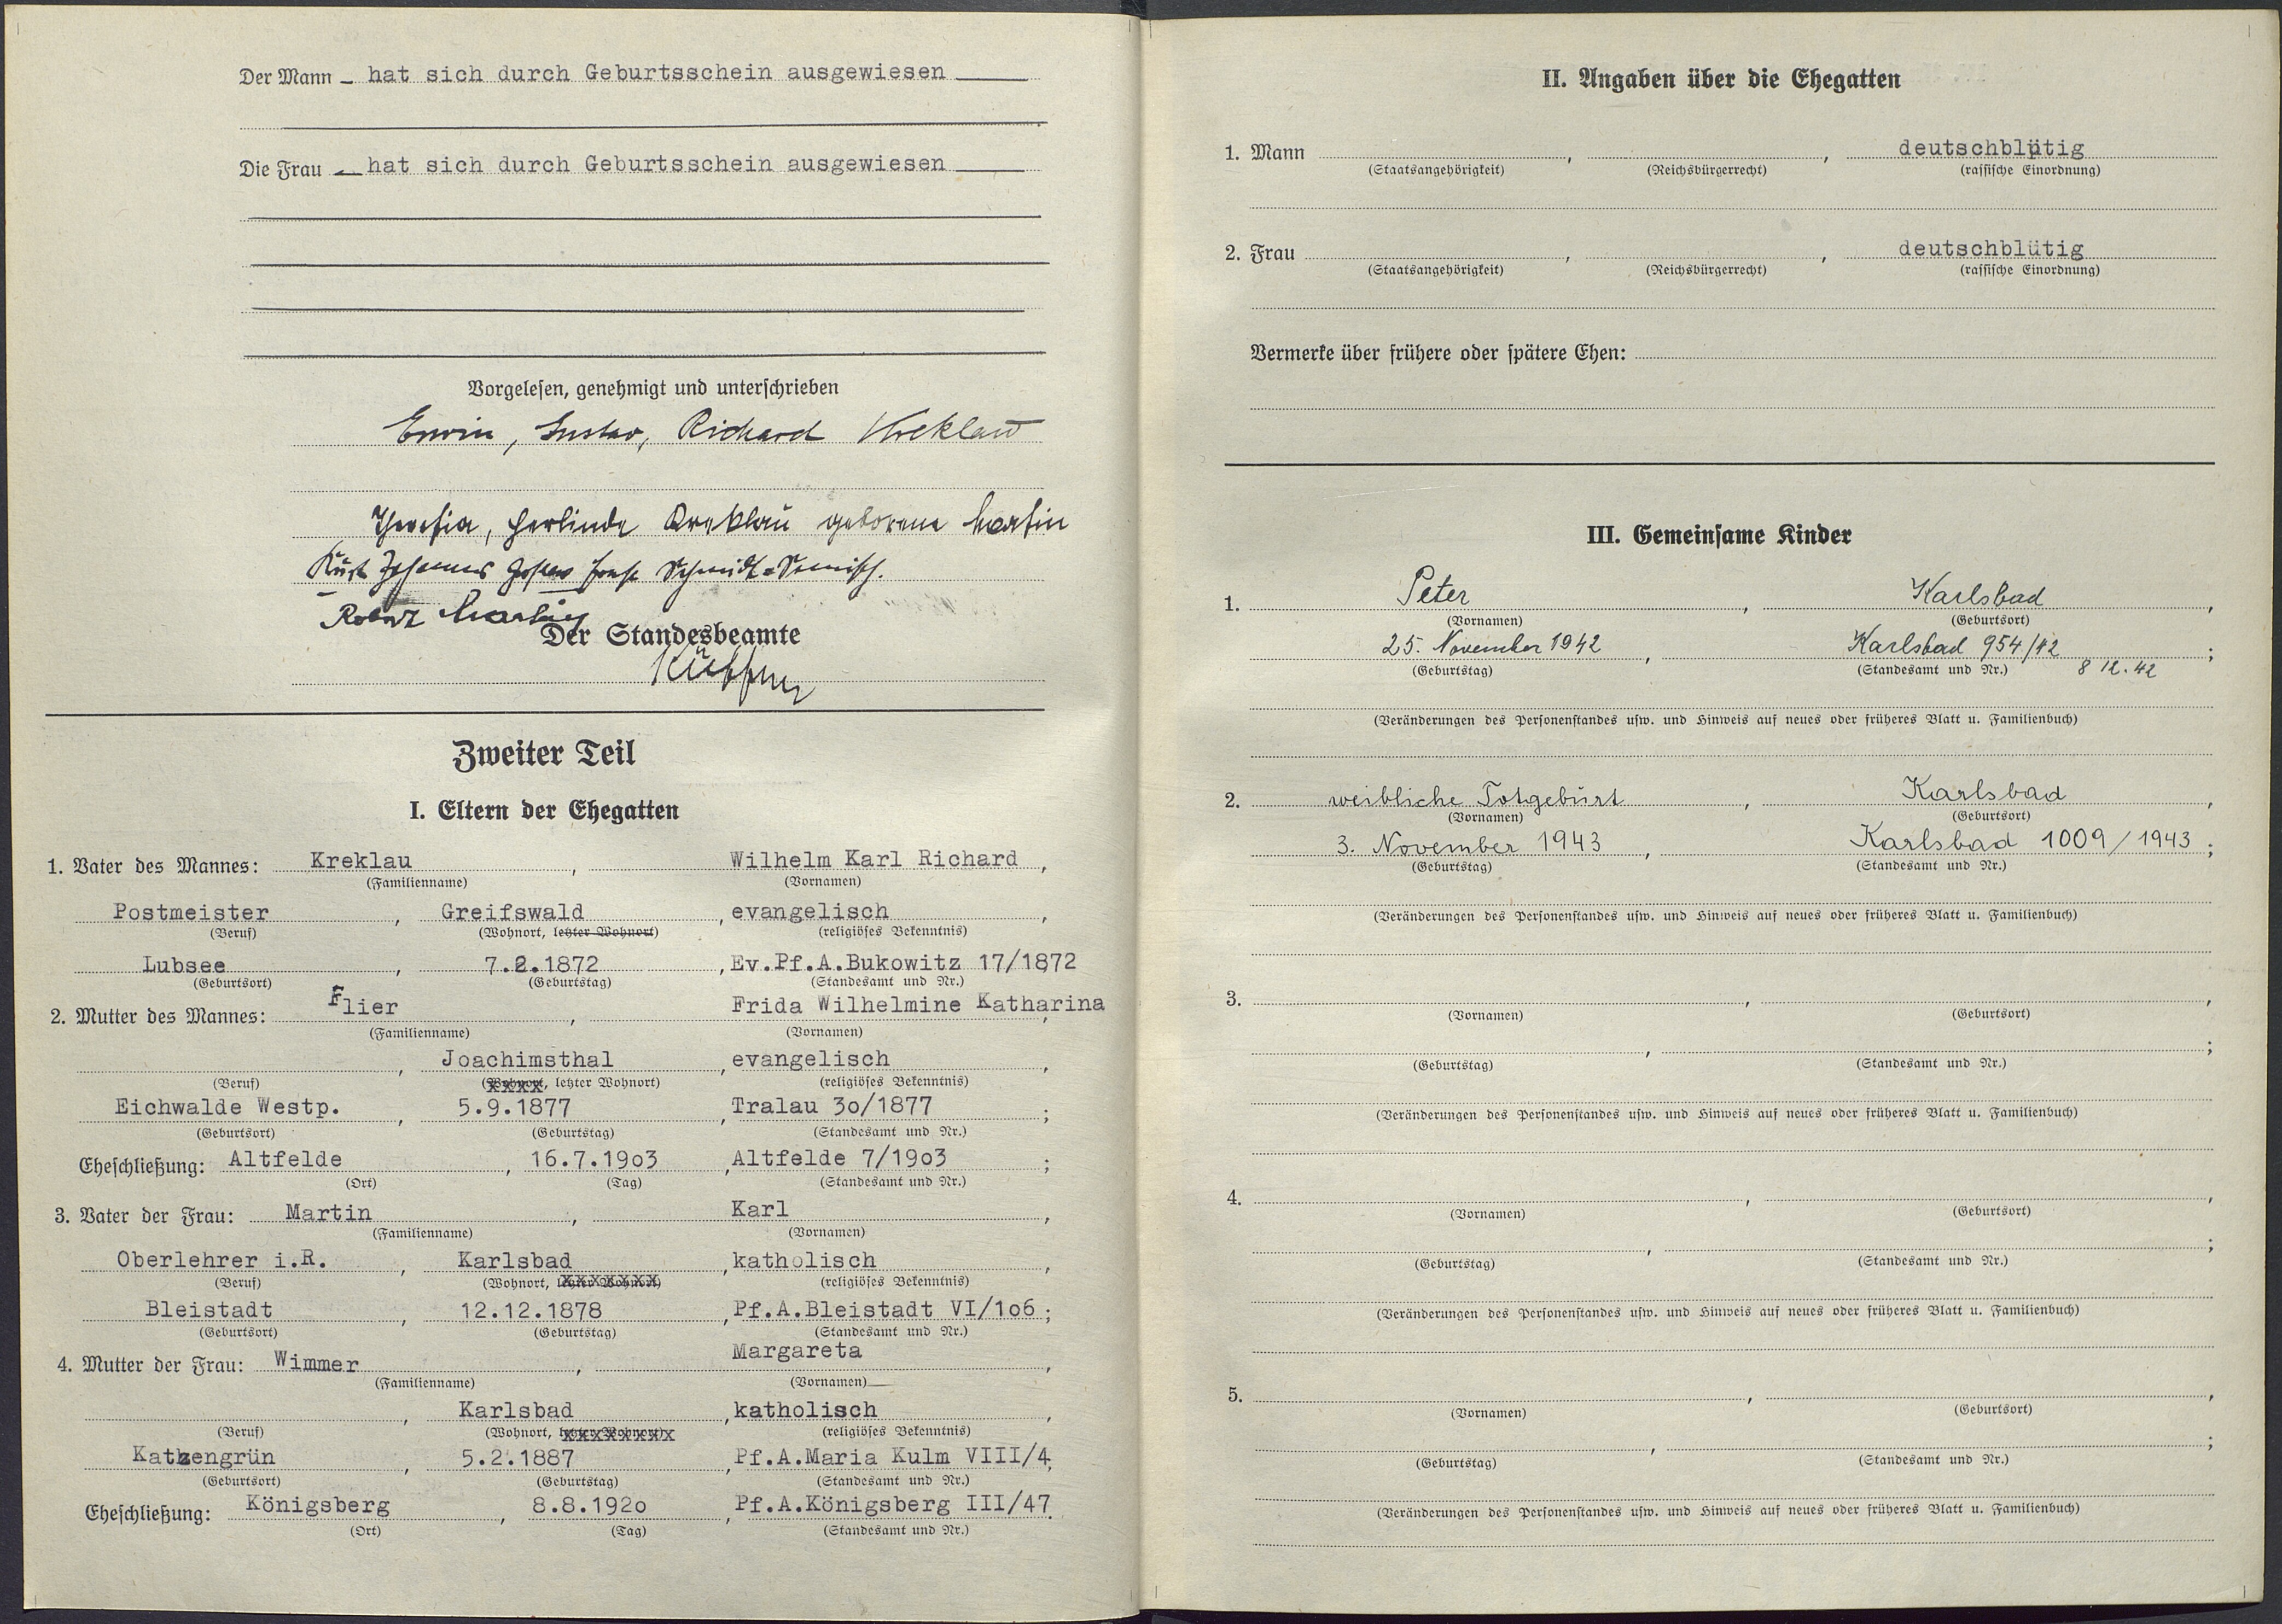 Der Mann – hat sich durch Geburtsschein ausgewiesen
Die Frau – hat sich durch Geburtsschein ausgewiesen
Vorgelesen, genehmigt und unterschrieben
Erwin, Gustav, Richard Kreklau
Theresia, Gerlinde Kreklau geborene Martin
Kurt Johannes Gustav Ernst Schmidt-
Robert Martin
Der Standesbeamte
Zweiter Teil
I. Eltern der Ehegatten
1. Vater des Mannes: Kreklau, Wilhelm Karl Richard,
(Familienname) (Vornamen)
Postmeister, Greifswald, evangelisch,
(Beruf) (Wohnort, letzter Wohnort) (religiöses Bekenntnis)
Lubsee, 7.2.1872, Ev.Pf.A.Bukowitz 17/1872
(Geburtsort) (Geburtstag) (Standesamt und Nr.)
2. Mutter des Mannes: Flier, Frida Wilhelmine Katharina,
(Familienname) (Vornamen)
, Joachimsthal, evangelisch,
(Beruf) (Wohnort, letzter Wohnort) (religiöses Bekenntnis)
Eichwalde Westp., 5.9.1877, Tralau 3o/1877;
(Geburtsort) (Geburtstag) (Standesamt und Nr.)
Eheschließung: Altfelde, 16.7.19o3, Altfelde 7/19o3;
(Ort) (Tag) (Standesamt und Nr.)
3. Vater der Frau: Martin, Karl,
(Familienname) (Vornamen)
Oberlehrer i.R., Karlsbad, katholisch,
(Beruf) (Wohnort, letzter Wohnort) (religiöses Bekenntnis)
Bleistadt, 12.12.1878, Pf.A.Bleistadt VI/1o6;
(Geburtsort) (Geburtstag) (Standesamt und Nr.)
4. Mutter der Frau: Wimmer, Margareta,
(Familienname) (Vornamen)
, Karlsbad, katholisch,
(Beruf) (Wohnort, letzter Wohnort) (religiöses Bekenntnis)
Katzengrün, 5.2.1887, Pf.A.Maria Kulm VIII/4;
(Geburtsort) (Geburtstag) (Standesamt und Nr.)
Eheschließung: Königsberg, 8.8.192o, Pf.A.Königsberg III/47.
(Ort) (Tag) (Standesamt und Nr.)
II. Angaben über die Ehegatten
1. Mann , , deutschblütig
(Staatsangehörigkeit) (Reichsbürgerrecht) (rassische Einordnung)
2. Frau , , deutschblütig
(Staatsangehörigkeit) (Reichsbürgerrecht) (rassische Einordnung)
Vermerke über frühere oder spätere Ehen:
III. Gemeinsame Kinder
1. Peter, Karlsbad,
(Vornamen) (Geburtsort)
25. November 1942, Karlsbad 954/42;
(Geburtstag) (Standesamt und Nr.) 8 12. 42
(Veränderungen des Personenstandes usw. und Hinweis auf neues oder früheres Blatt u. Familienbuch)
2. weibliche Totgeburt, Karlsbad,
(Vornamen) (Geburtsort)
3. November 1943, Karlsbad 1009/1943;
(Geburtstag) (Standesamt und Nr.)
(Veränderungen des Personenstandes usw. und Hinweis auf neues oder früheres Blatt u. Familienbuch)
3. , ,
(Vornamen) (Geburtsort)
, ;
(Geburtstag) (Standesamt und Nr.)
(Veränderungen des Personenstandes usw. und Hinweis auf neues oder früheres Blatt u. Familienbuch)
4. , ,
(Vornamen) (Geburtsort)
, ;
(Geburtstag) (Standesamt und Nr.)
(Veränderungen des Personenstandes usw. und Hinweis auf neues oder früheres Blatt u. Familienbuch)
5. , ,
(Vornamen) (Geburtsort)
, ;
(Geburtstag) (Standesamt und Nr.)
(Veränderungen des Personenstandes usw. und Hinweis auf neues oder früheres Blatt u. Familienbuch)